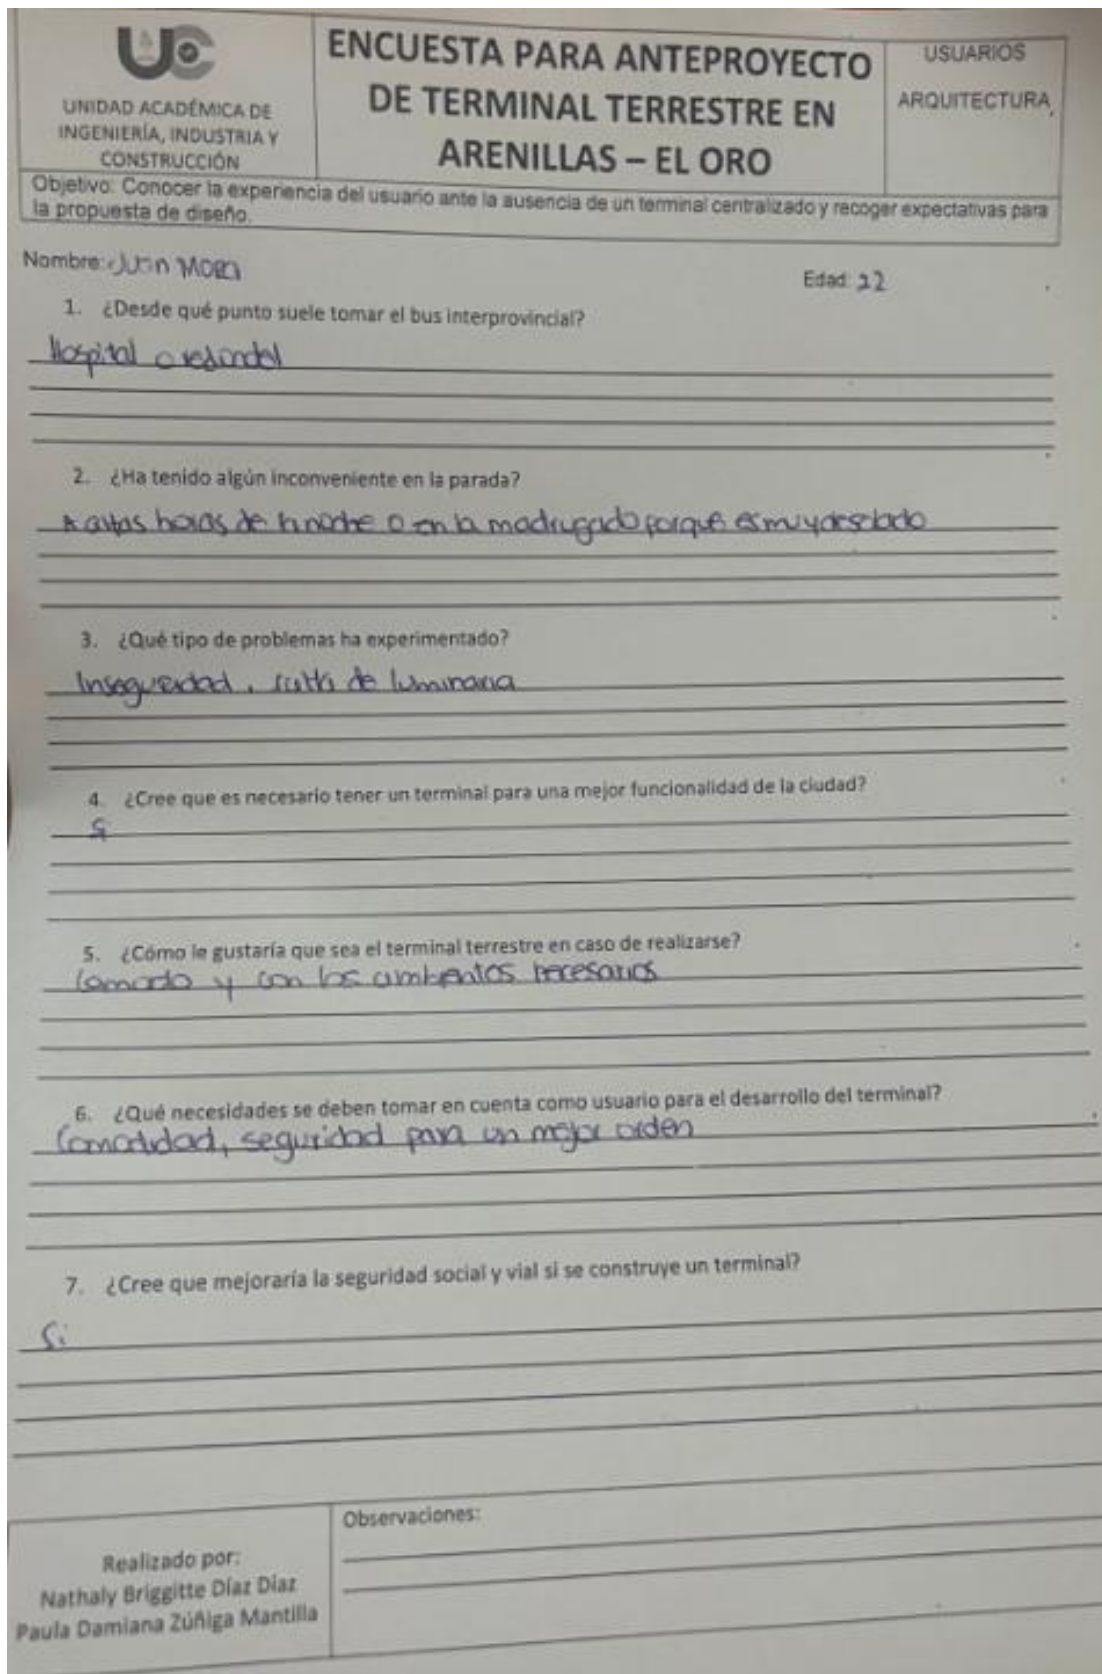 UC
UNIDAD ACADÉMICA DE
INGENIERÍA, INDUSTRIA Y
CONSTRUCCIÓN
ENCUESTA PARA ANTEPROYECTO
DE TERMINAL TERRESTRE EN
ARENILLAS – EL ORO
USUARIOS
ARQUITECTURA
Objetivo: Conocer la experiencia del usuario ante la ausencia de un terminal centralizado y recoger expectativas para
la propuesta de diseño.
Nombre: Juan Mora
Edad: 22
1. ¿Desde qué punto suele tomar el bus interprovincial?
Hospital o redondel
2. ¿Ha tenido algún inconveniente en la parada?
A altas horas de la noche o en la madrugado porque es muy desolado
3. ¿Qué tipo de problemas ha experimentado?
Inseguridad, falta de luminaria
4. ¿Cree que es necesario tener un terminal para una mejor funcionalidad de la ciudad?
Si
5. ¿Cómo le gustaría que sea el terminal terrestre en caso de realizarse?
Comodo y con los ambientes necesarios
6. ¿Qué necesidades se deben tomar en cuenta como usuario para el desarrollo del terminal?
Comodidad, seguridad para un mejor orden
7. ¿Cree que mejoraría la seguridad social y vial si se construye un terminal?
Si
Realizado por:
Nathaly Briggitte Díaz Díaz
Paula Damiana Zúñiga Mantilla
Observaciones: